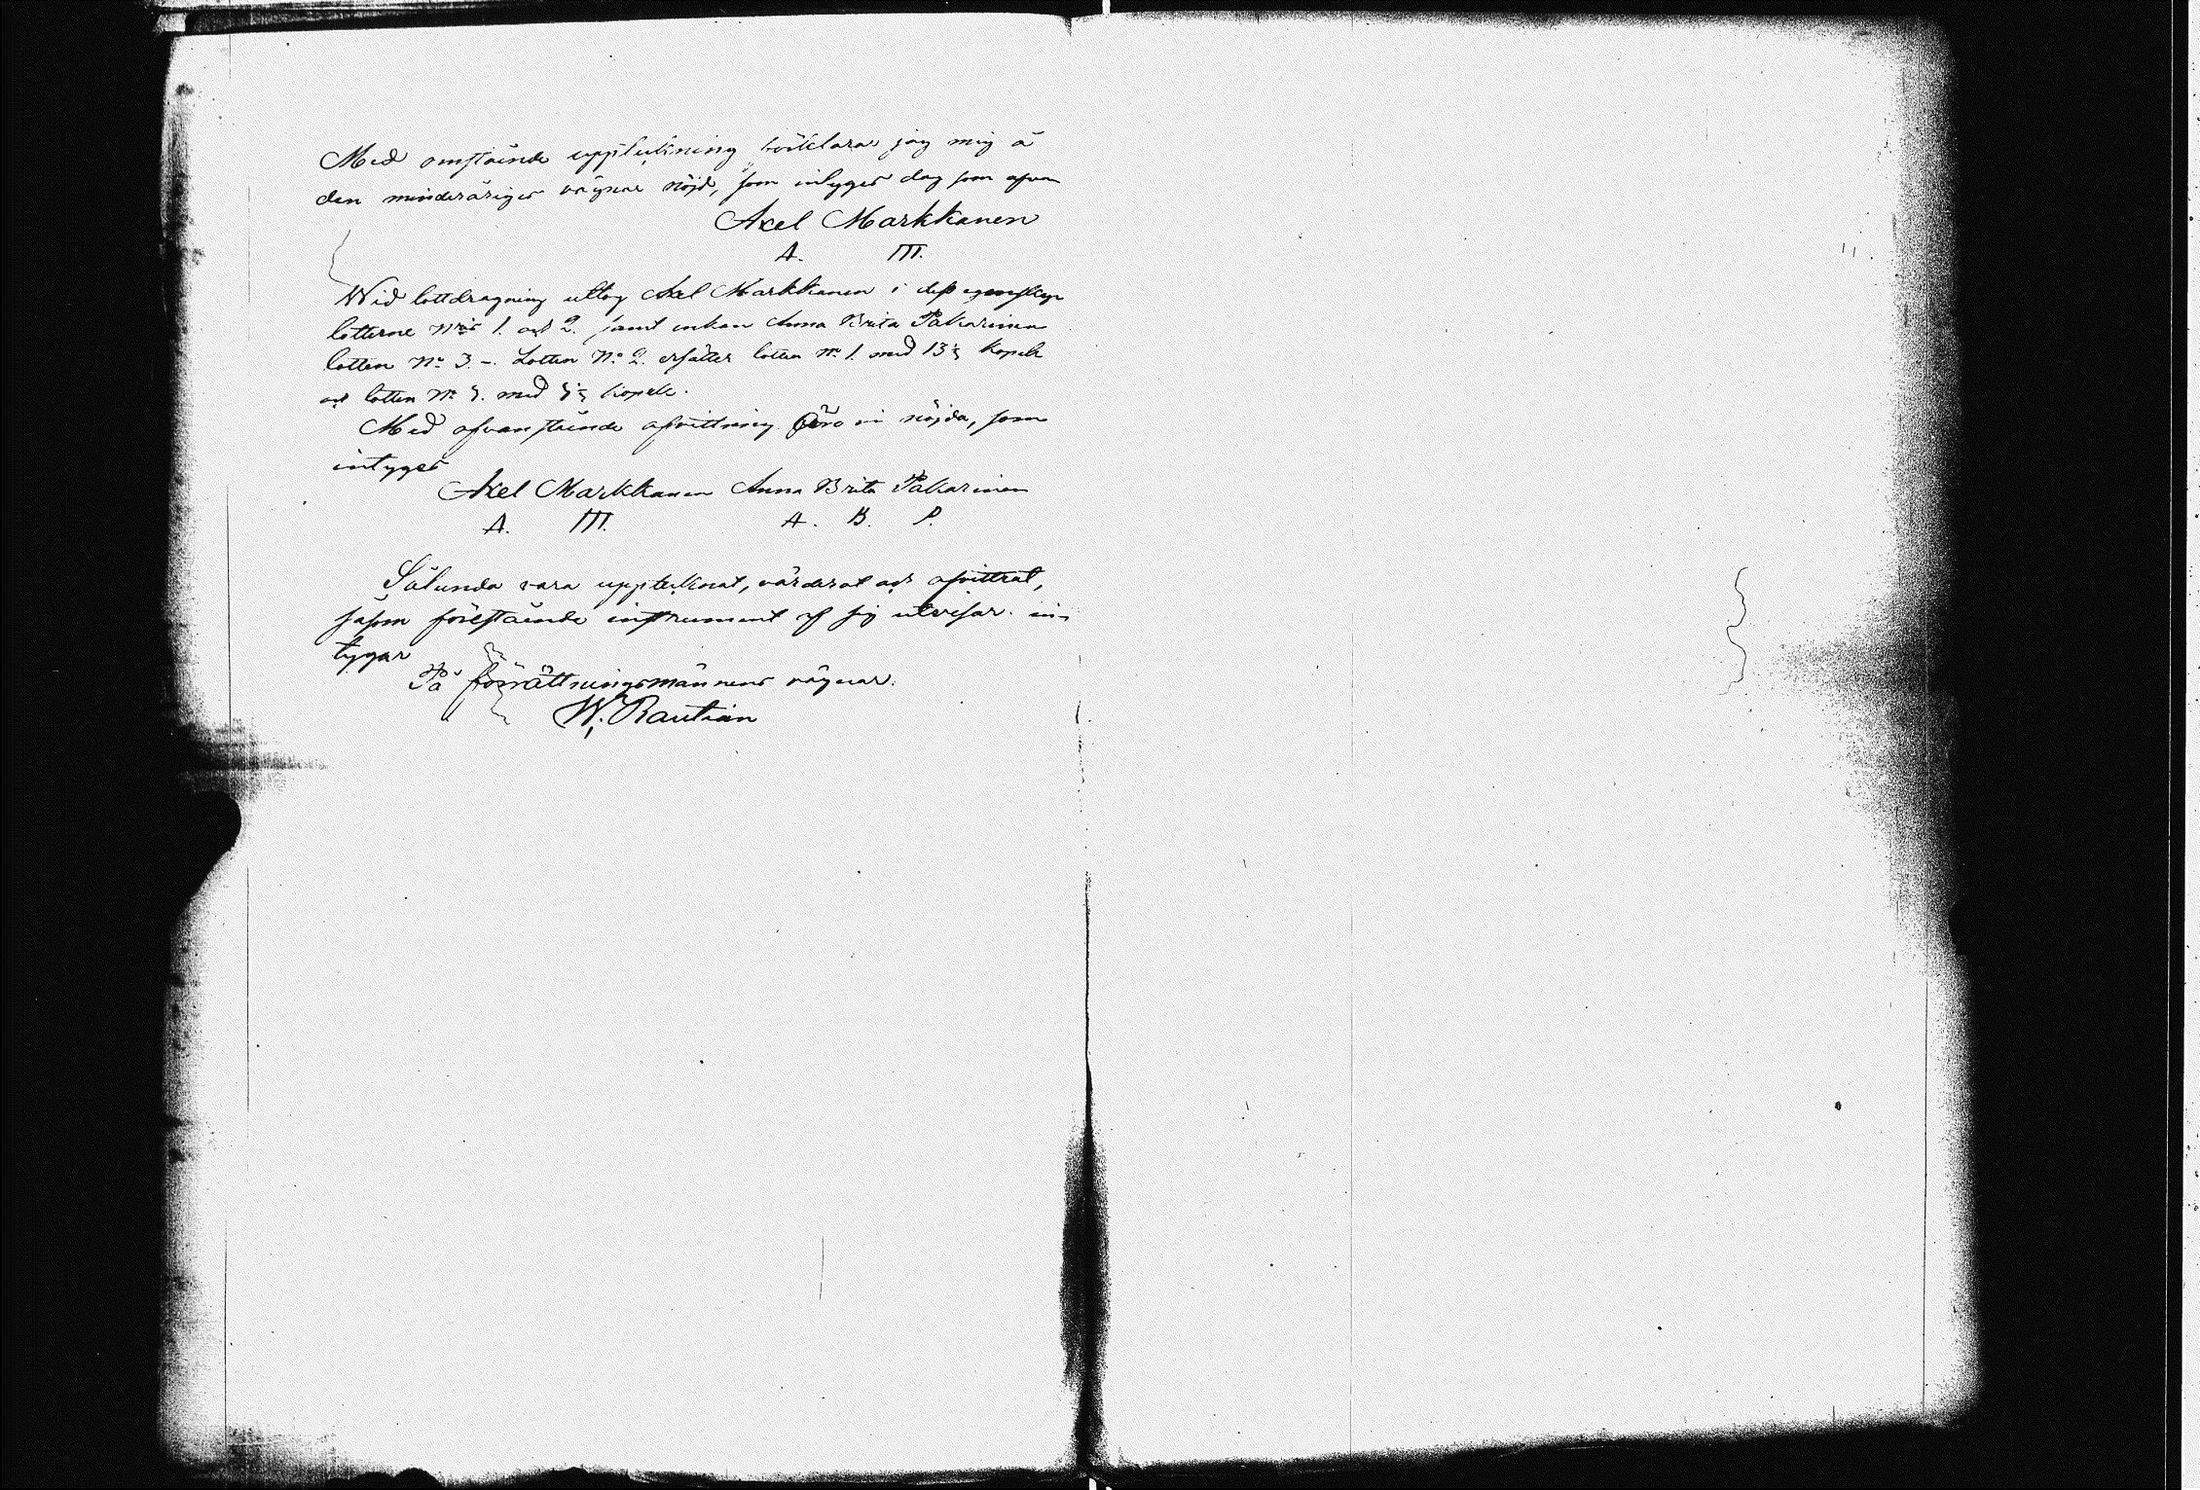 Med omstående uppteckning förklarar jag mig å
den minderåriges vägnar nöjd, som intyges dag som ofvan
Axel Markkanen
A. M.
Wid lottdragning uttog Axel Markkanen i dess egenskap
lotterne N:ris 1. och 2. samt enkan Anna Brita Pakarinen
lotten N:o 3. -. Lotten N:o 2. ersätter lotten N:o 1. med 13½ kopek
och lotten N:o 3. med kopek.
Med ofvanstående afvittring äro vi nöjda, som
intyges
Axel Markkanen Anna Brita Pakarinen
A. M. A. B. P.
Sålunda vara upptecknat, värderat och afvittrat,
såsom förestående instrument af sig utvisar. in-
tygar
På förrättningsmännens vägnar.
W. Rautiain